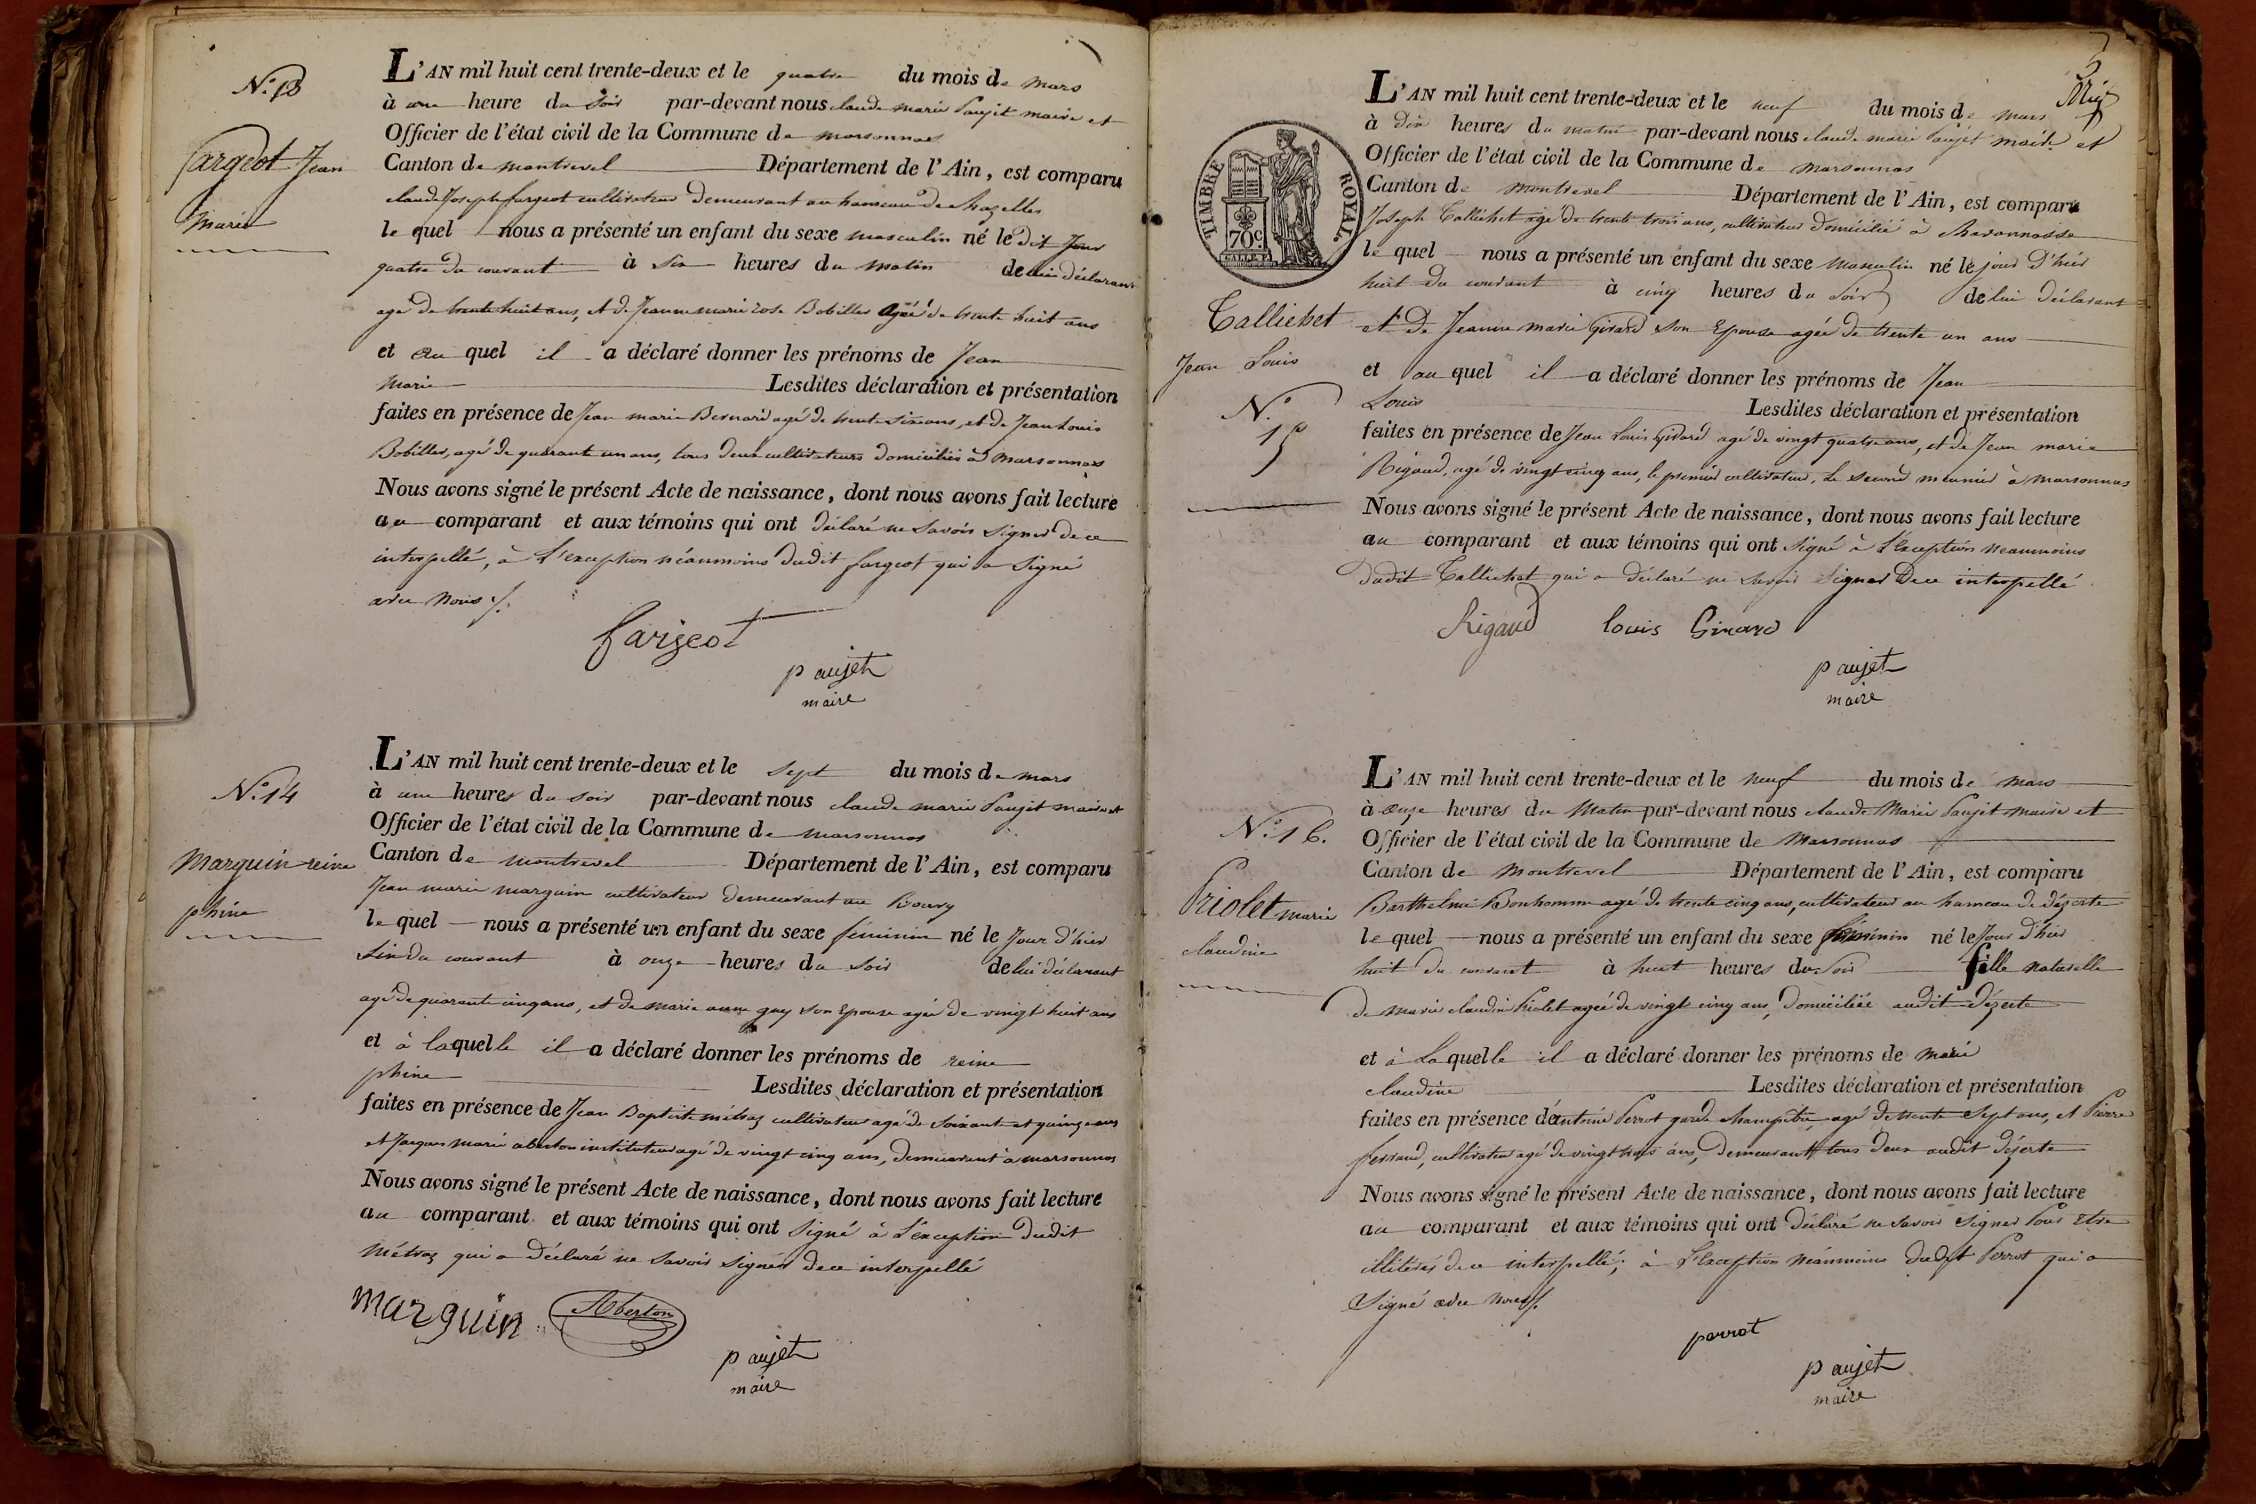 N.° 13
fargeot Jean
Marie
L'AN mil huit cent trente-deux et le quatre du mois de mars
à une heure du soir par-devant nous claude marie Paujet maire et
Officier de l'état civil de la Commune de marsonnas
Canton de montrevel Département de l'Ain, est comparu
claude Joseph fargeot cultivateur demeurant au hameau de chazelles
le quel nous a présenté un enfant du sexe masculin né le dit Jour
quatre du courant à six heures du matin de lui déclarant
agé de trente huit ans, et de Jeanne marie rose Bobillet agée de trente huit ans
et au quel il a déclaré donner les prénoms de Jean
Marie Lesdites déclaration et présentation
faites en présence de Jean marie Bernard agé de trente six ans, et de Jean Louis
Bobillet, agé de quarante un ans, tous deux cultivateurs domiciliés à marsonnas
Nous avons signé le présent Acte de naissance, dont nous avons fait lecture
au comparant et aux témoins qui ont déclaré ne savoir signer de ce
interpellé, à l'exception néanmoins dudit fargeot qui a signé
avec nous
fargeot
paujet
maire
N.° 14
Marguin reine
phine
L'AN mil huit cent trente-deux et le sept du mois de mars
à une heures du soir par-devant nous claude marie Paujet maire et
Officier de l'état civil de la Commune de marsonnas
Canton de montrevel Département de l'Ain, est comparu
Jean marie marguin cultivateur demeurant au Bourg
le quel nous a présenté un enfant du sexe féminin né le Jour d'hier
six du courant à onze heures du soir de lui déclarant
agé de quarante cinq ans, et de marie anne guy son Epouse agée de vingt huit ans
et à laquelle il a déclaré donner les prénoms de reine
phine Lesdites déclaration et présentation
faites en présence de Jean Baptiste métraz cultivateur agé de soixante et quinze ans
et Jacques marie aberton instituteur agé de vingt cinq ans, demeurant à marsonnas
Nous avons signé le présent Acte de naissance, dont nous avons fait lecture
au comparant et aux témoins qui ont signé à l'exception dudit
Métraz qui a déclaré ne savoir signer de ce interpellé
marguin Aberton
paujet
maire
5
TIMBRE ROYAL
70c
Tallichet
Jean Louis
N.°
15
L'AN mil huit cent trente-deux et le neuf du mois de mars
à dix heures du matin par-devant nous claude marie Paujet maire et
Officier de l'état civil de la Commune de marsonnas
Canton de montrevel Département de l'Ain, est comparu
Joseph Tallichet agé de trente trois ans, cultivateur domicilié à
le quel nous a présenté un enfant du sexe masculin né le jour d'hier
huit du courant à cinq heures du soir de lui déclarant
et de Jeanne marie Girard son Epouse agée de trente un ans
et au quel il a déclaré donner les prénoms de Jean
Louis Lesdites déclaration et présentation
faites en présence de Jean Louis Girard agé de vingt quatre ans, et de Jean marie
Rigaud, agé de vingt cinq ans, le premier cultivateur, le second meunier à marsonnas
Nous avons signé le présent Acte de naissance, dont nous avons fait lecture
au comparant et aux témoins qui ont signé à l'Exception neanmoins
dudit Tallichet qui a déclaré ne savoir signer de ce interpellé
Rigaud Louis Girard
paujet
maire
N.° 16.
Priolet marie
claudine
L'AN mil huit cent trente-deux et le neuf du mois de mars
à onze heures du Matin par-devant nous claude Marie Paujet maire et
Officier de l'état civil de la Commune de Marsonnas
Canton de Montrevel Département de l'Ain, est comparu
Barthelmi Bonhomme agé de trente cinq ans, cultivateur au hameau de dézerte
le quel nous a présenté un enfant du sexe féminin né le Jour d'hier
huit du courant à huit heures du soir fille naturelle
de marie claudine Priolet agée de vingt cinq ans, domiciliée audit dézerte
et à Laquelle il a déclaré donner les prénoms de marie
claudine Lesdites déclaration et présentation
faites en présence d'antoine Perrot garde champêtre agé de trente sept ans, et Pierre
ferrand, cultivateur agé de vingt trois ans, demeurant tous deux audit dézerte
Nous avons signé le présent Acte de naissance, dont nous avons fait lecture
au comparant et aux témoins qui ont déclaré ne savoir signer Pour Etre
illitérés de ce interpellé; à l'Exception néanmoins dudit Perrot qui a
Signé avec nous
perrot
paujet
maire